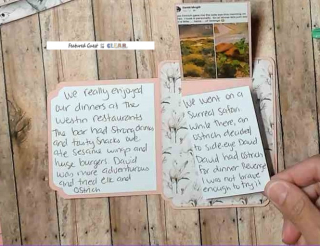 Featured Guest
We really enjoyed
our dinners at The
Westin restaurants
The bar had strong drinks
and tasty snacks we
ate sesame wings and
huge burgers David
was more adventurous
and tried elk and
Ostrich
We went on a
Surreal Safari
while there, an
Ostrich decided
to side eye David
David had Ostrich
for dinner Revenge
I was not brave
enough to try it